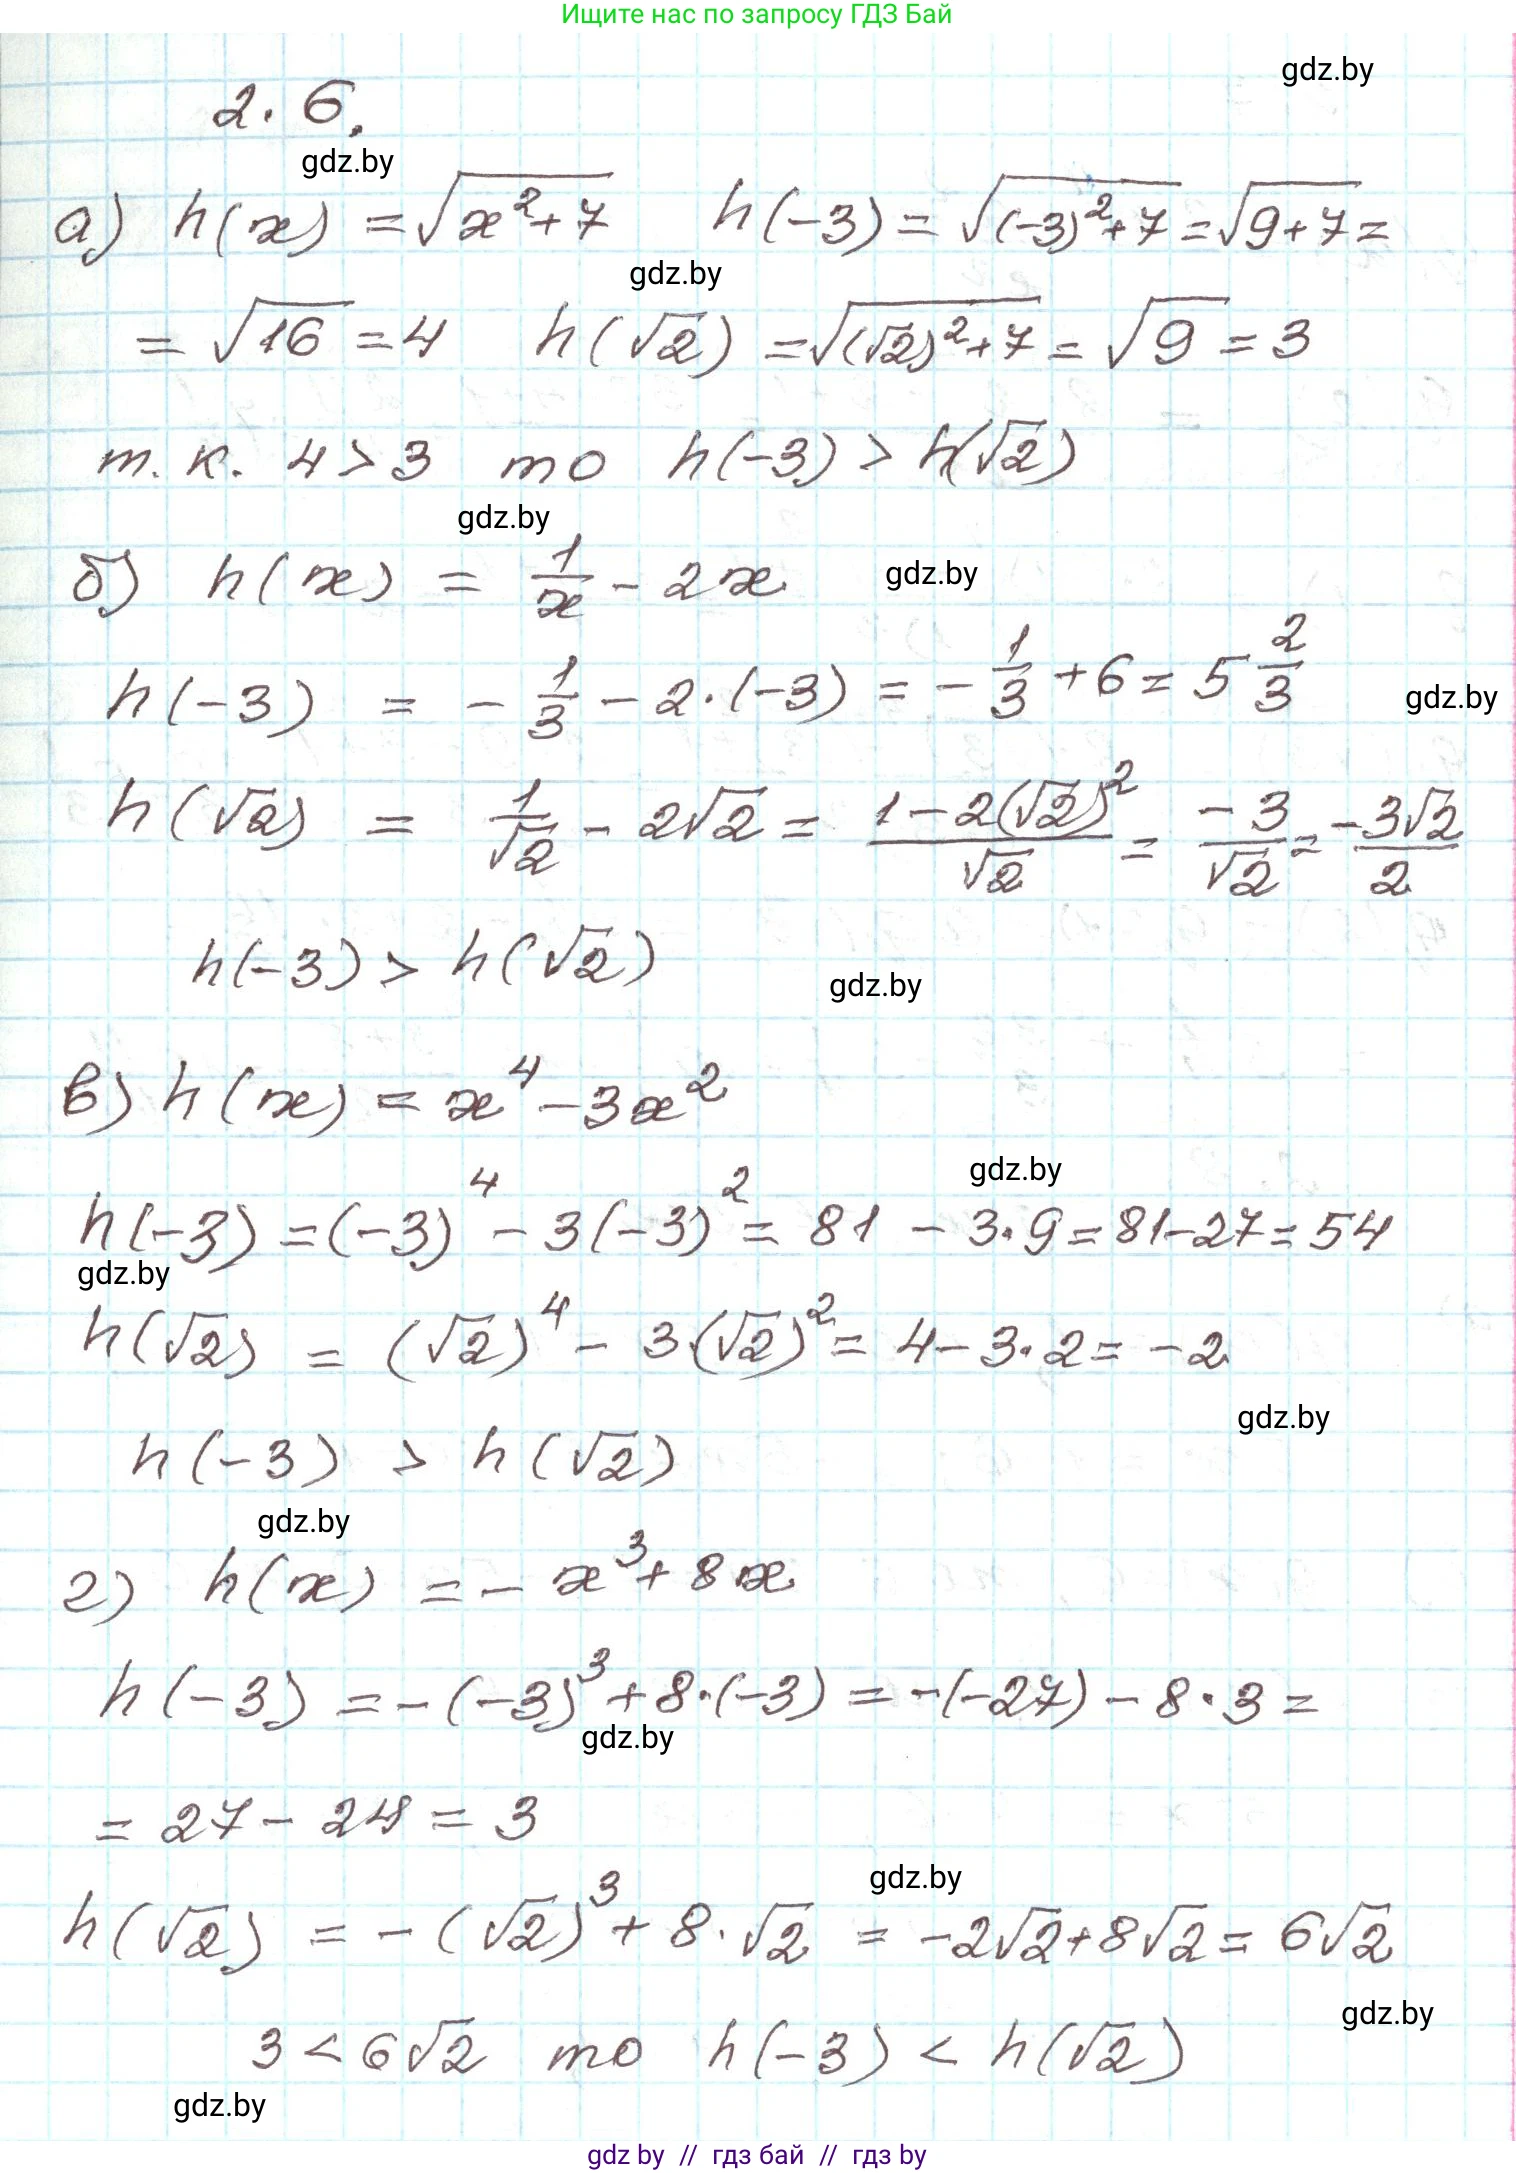 Ищите нас по запросу ГДЗ Бай
gdz.by
2.6.
gdz.by
а) h(x) = √(x²+7)  h(-3) = √((-3)²+7) = √(9+7) =
gdz.by
= √16 = 4  h(√2) = √((√2)²+7) = √9 = 3
т.к. 4 > 3 то h(-3) > h(√2)
gdz.by
б) h(x) = 1/x - 2x
gdz.by
h(-3) = - 1/3 - 2·(-3) = - 1/3 + 6 = 5 2/3
gdz.by
h(√2) = 1/√2 - 2√2 = (1-2(√2)²)/√2 = -3/√2 = -3√2/2
h(-3) > h(√2)
gdz.by
в) h(x) = x⁴ - 3x²
gdz.by
h(-3) = (-3)⁴ - 3(-3)² = 81 - 3·9 = 81-27 = 54
gdz.by
h(√2) = (√2)⁴ - 3·(√2)² = 4 - 3·2 = -2
gdz.by
h(-3) > h(√2)
gdz.by
г) h(x) = - x³ + 8x
h(-3) = -(-3)³ + 8·(-3) = -(-27) - 8·3 =
gdz.by
= 27 - 24 = 3
gdz.by
h(√2) = -(√2)³ + 8·√2 = -2√2+8√2 = 6√2
gdz.by
3 < 6√2 то h(-3) < h(√2)
gdz.by
gdz by // гдз бай // гдз by